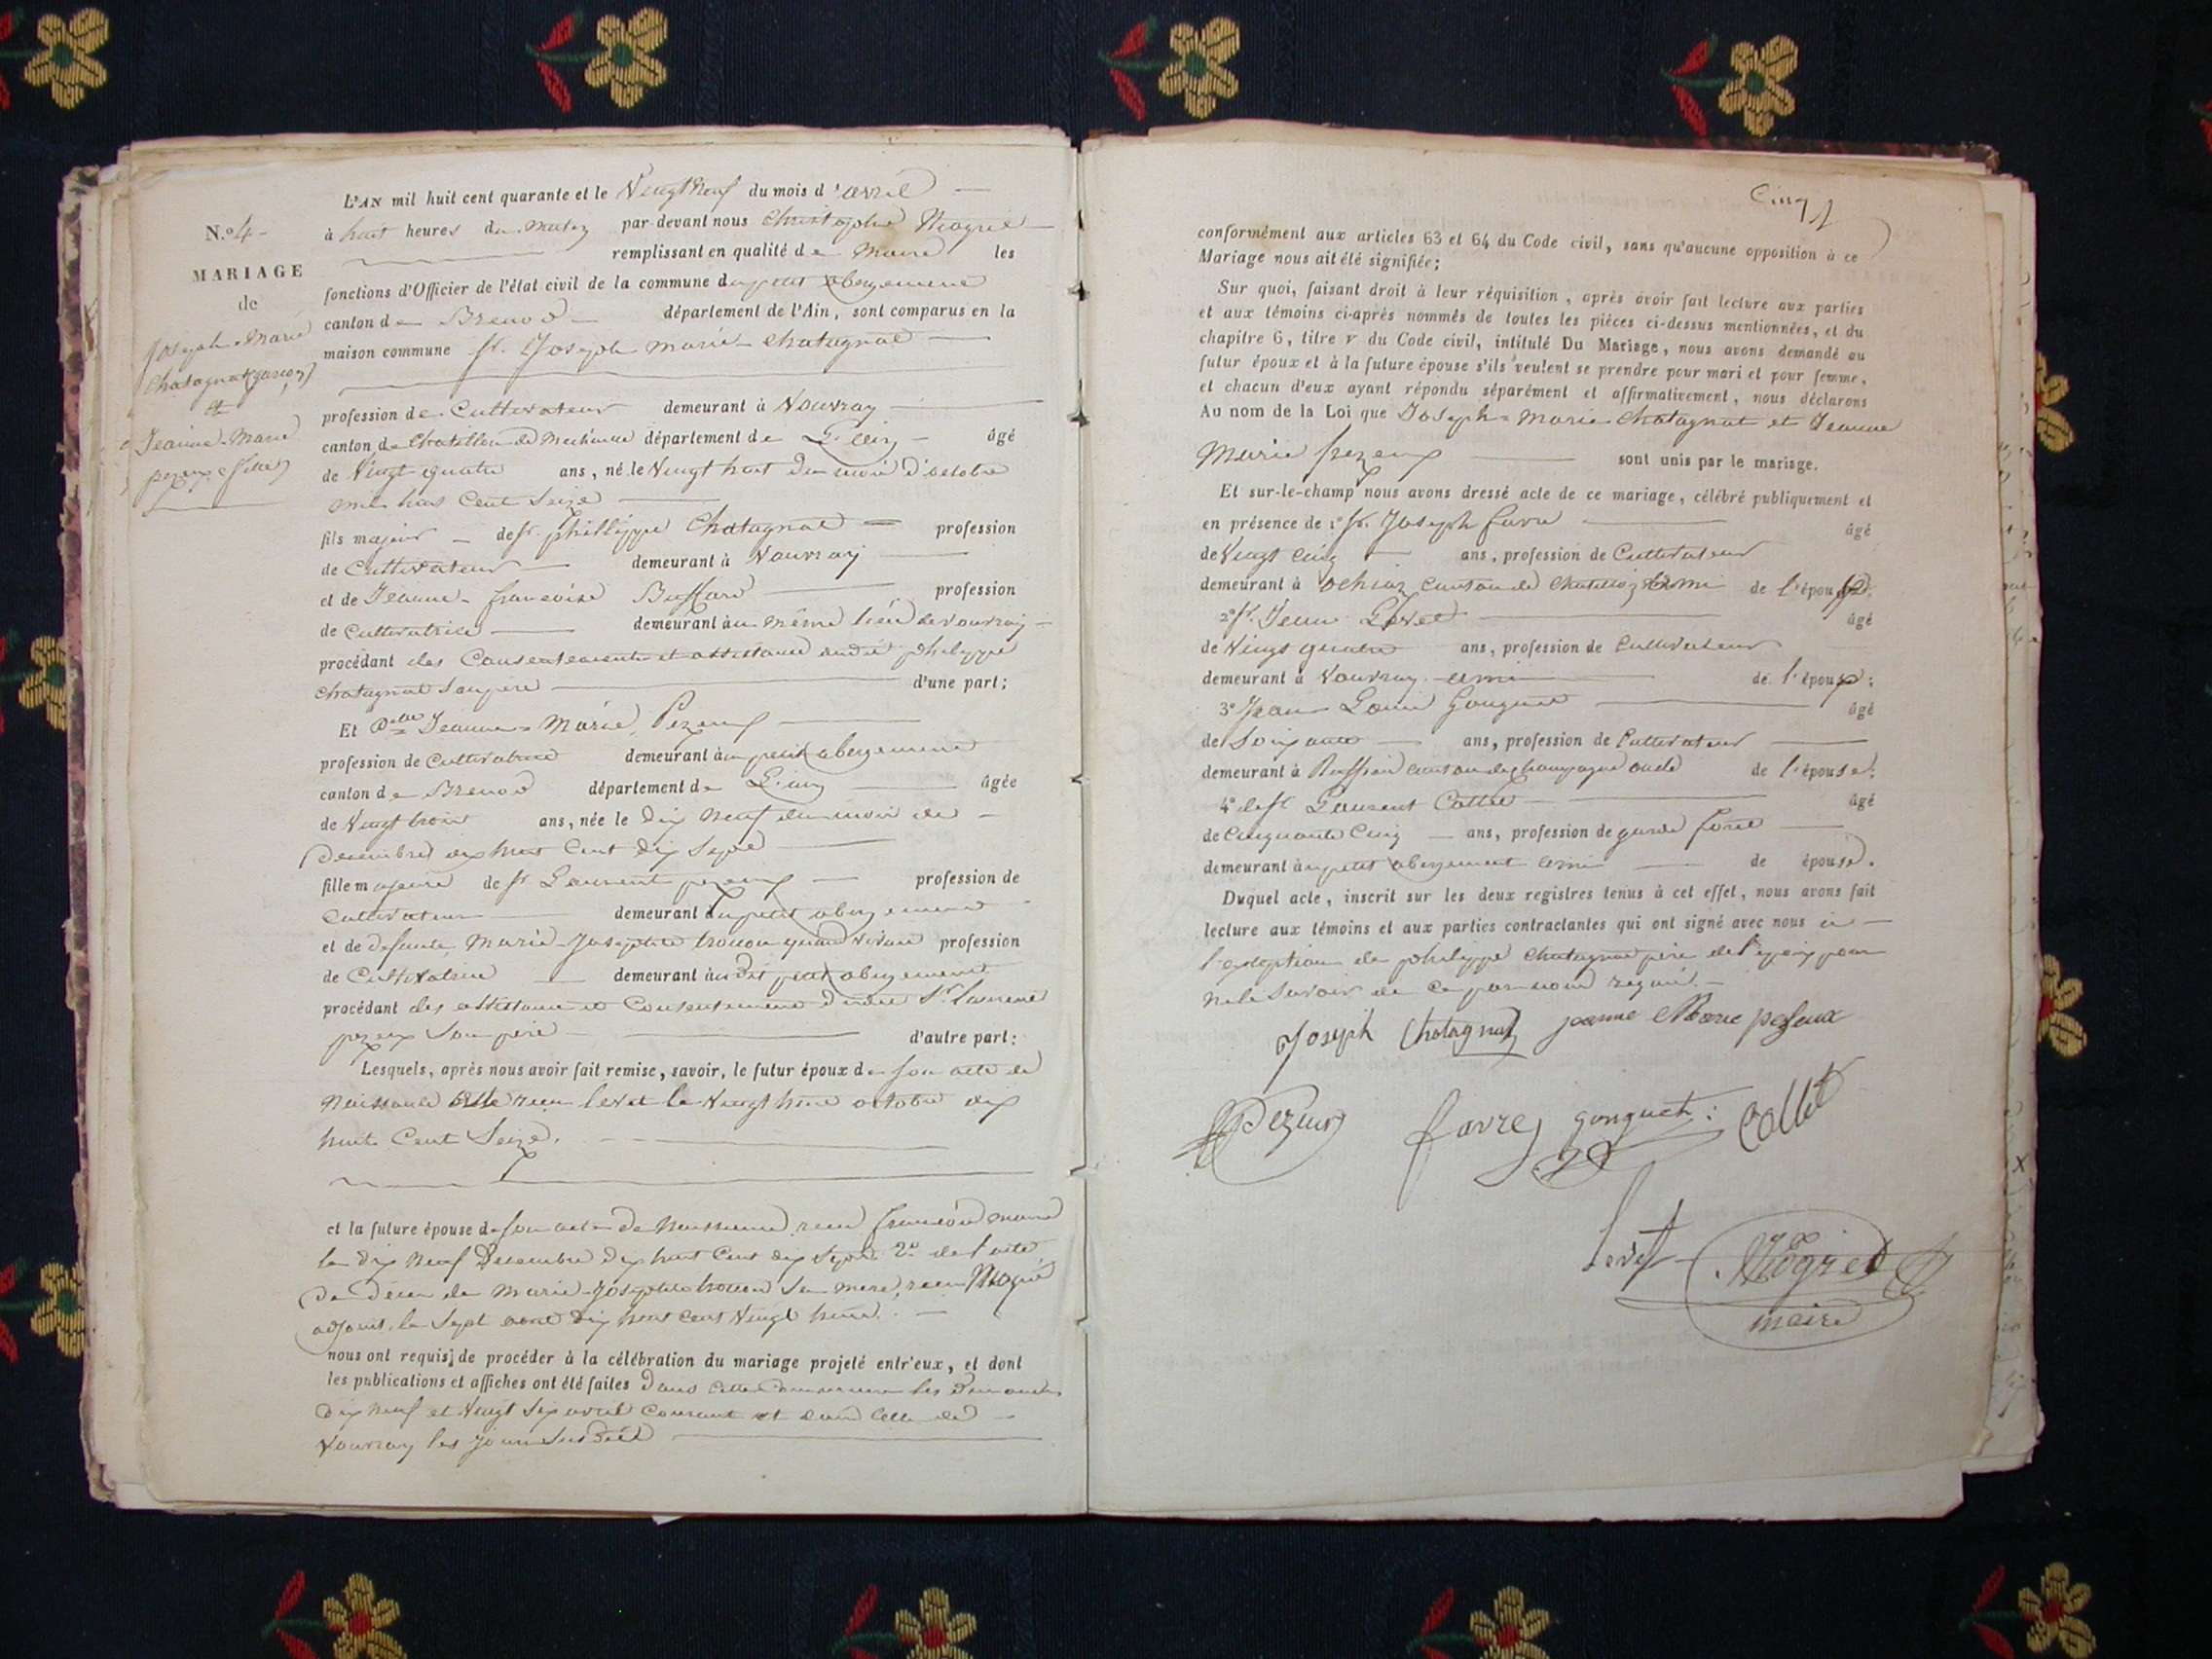 N.º 4 -
MARIAGE
de
Joseph-Marie
Chatagnat garçon
et
Jeanne-Marie
pezeux fille
L'AN mil huit cent quarante et le Vingt neuf du mois d'avril
à huit heures du matin par-devant nous Christophe Mogniet
remplissant en qualité de Maire les
fonctions d'Officier de l'état civil de la commune du petit abergement
canton de Brenod département de l'Ain, sont comparus en la
maison commune Sr. Joseph marie Chatagnat
profession de Cultivateur demeurant à Vouvray
canton de Chatillon de Michaille département de L'ain âgé
de Vingt quatre ans, né le Vingt huit du mois d'octobre
mil huit Cent Seize
fils majeur de Sr. philippe Chatagnat profession
de Cultivateur demeurant à Vouvray
et de Jeanne-françoise Buffard profession
de Cultivatrice demeurant au même lieu de Vouvray
procédant des Consentement et assistance dudit philippe
Chatagnat Son père d'une part;
Et Dlle Jeanne-Marie Pezeux
profession de Cultivatrice demeurant au petit abergement
canton de Brenod département de L'ain âgée
de Vingt trois ans, née le dix Neuf du mois de
Decembre dix huit Cent dix Sept
fille majeure de Sr Laurent pezeux profession de
Cultivateur demeurant au petit abergement
et de defunte Marie-Josephte quand vivait profession
de Cultivatrice demeurant au dit petit abergement
procédant des assistance et Consentement dudit Sr. Laurent
pezeux Son père d'autre part:
Lesquels, après nous avoir fait remise, savoir, le futur époux de Son acte de
Naissance reçu levet le Vingt huit octobre dix
huit Cent Seize.
et la future épouse de Son acte de Naissance reçu maire
le dix Neuf Decembre dix huit Cent dix Sept 2º de l'acte
de décès de Marie-Josephte Sa mere, reçu Mogniet
adjoint, le Sept dix huit Cent Vingt huit.
nous ont requis de procéder à la célébration du mariage projeté entr'eux, et dont
les publications et affiches ont été faites dans cette Commune les Dimanches
dix Neuf et Vingt Six avril Courant et dans Celle de
Vouvray les jours Susdits
Cinq
conformément aux articles 63 et 64 du Code civil, sans qu'aucune opposition à ce
Mariage nous ait été signifiée;
Sur quoi, faisant droit à leur réquisition, après avoir fait lecture aux parties
et aux témoins ci-après nommés de toutes les pièces ci-dessus mentionnées, et du
chapitre 6, titre v du Code civil, intitulé Du Mariage, nous avons demandé au
futur époux et à la future épouse s'ils veulent se prendre pour mari et pour femme,
et chacun d'eux ayant répondu séparément et affirmativement, nous déclarons
Au nom de la Loi que Joseph-Marie Chatagnat et Jeanne
Marie pezeux sont unis par le mariage.
Et sur-le-champ nous avons dressé acte de ce mariage, célébré publiquement et
en présence de 1º Sr. Joseph favre âgé
de Vingt Cinq ans, profession de Cultivateur
demeurant à ochiaz Canton de Chatillon ami de l'époux.
2º Sr. Jean Levet âgé
de Vingt quatre ans, profession de Cultivateur
demeurant à Vouvray ami de l'époux;
3º Jean Louis Gonguet âgé
de Soixante ans, profession de Cultivateur
demeurant à Ruffieu Canton de Champagne oncle de l'épouse;
4º de Sr Laurent Collet âgé
de Cinquante Cinq ans, profession de garde forêt
demeurant au petit abergement ami de épouse.
Duquel acte, inscrit sur les deux registres tenus à cet effet, nous avons fait
lecture aux témoins et aux parties contractantes qui ont signé avec nous à
l'exeption de philippe Chatagnat père de l'époux pour
ne le Savoir de Ce par nous requis.
Joseph Chatagnat jeanne Marie pezeux
Pezeux favre gonguet: Collet
Levet Mogniet
maire